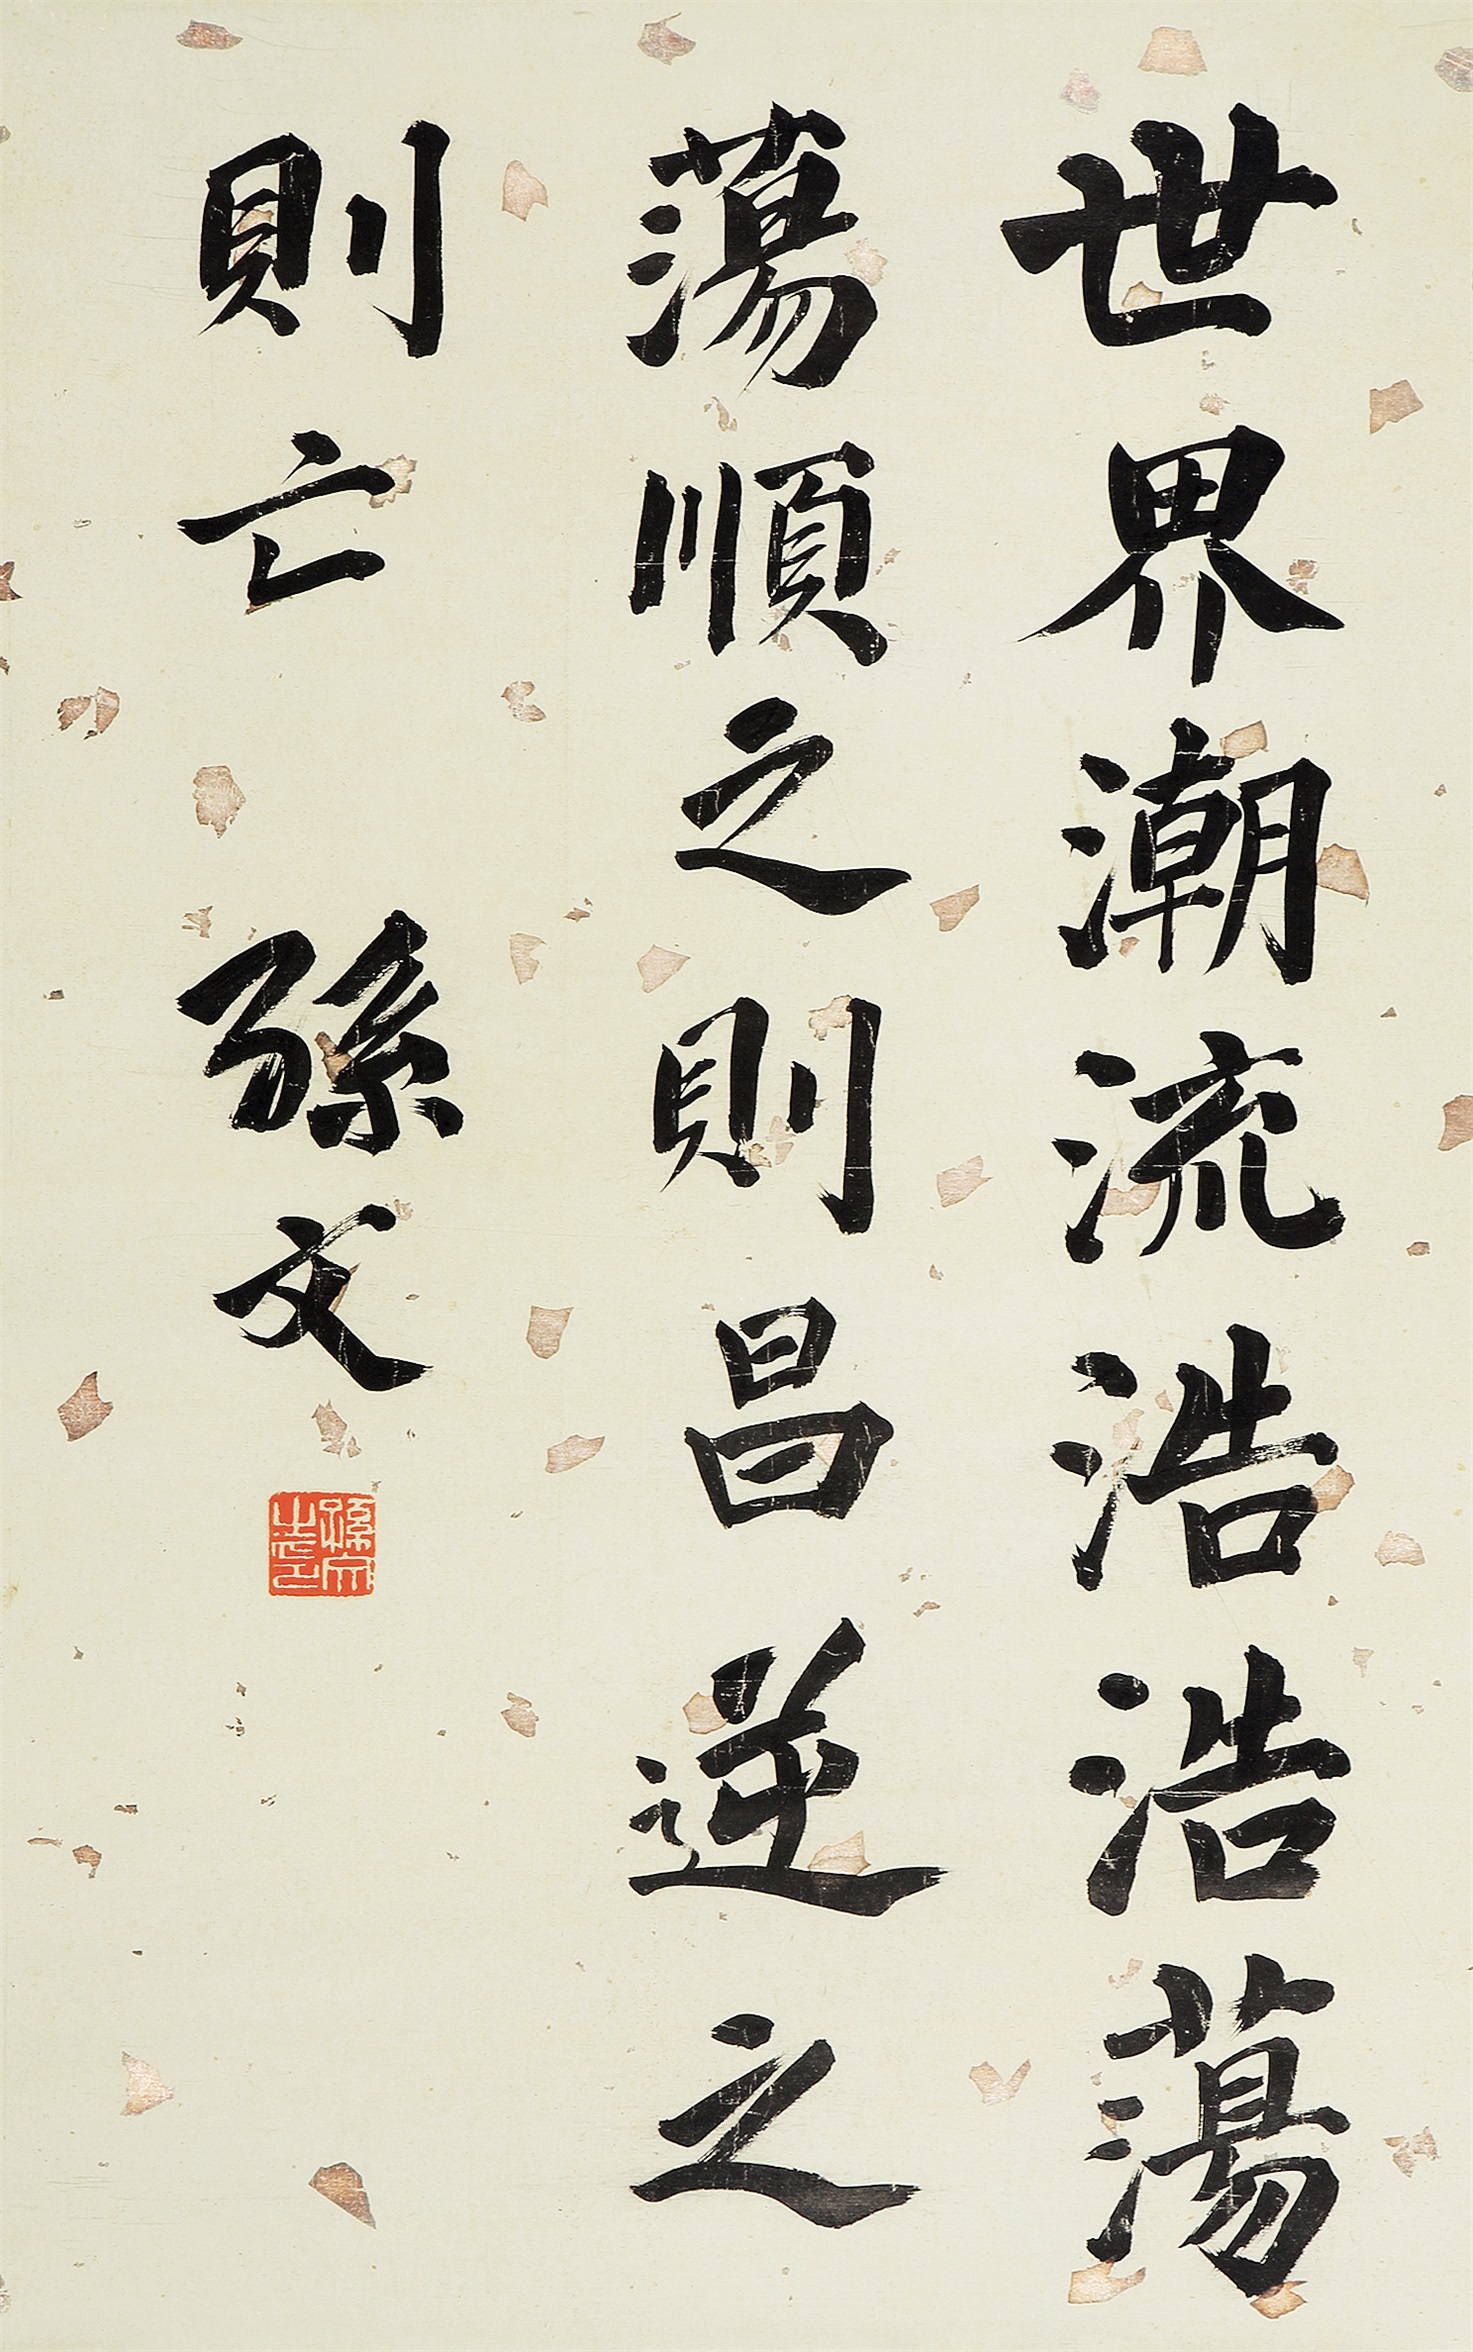 世界潮流浩浩蕩
蕩順之則昌逆之
則亡 孫文
孫文之印